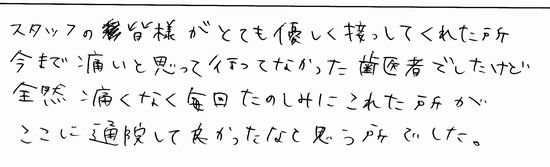 スタッフの皆様がとても優しく接っしてくれた所
今まで痛いと思って行ってなかった歯医者でしたけど
全然痛くなく毎回たのしみにこれた所が
ここに通院して良かったなと思う所でした。